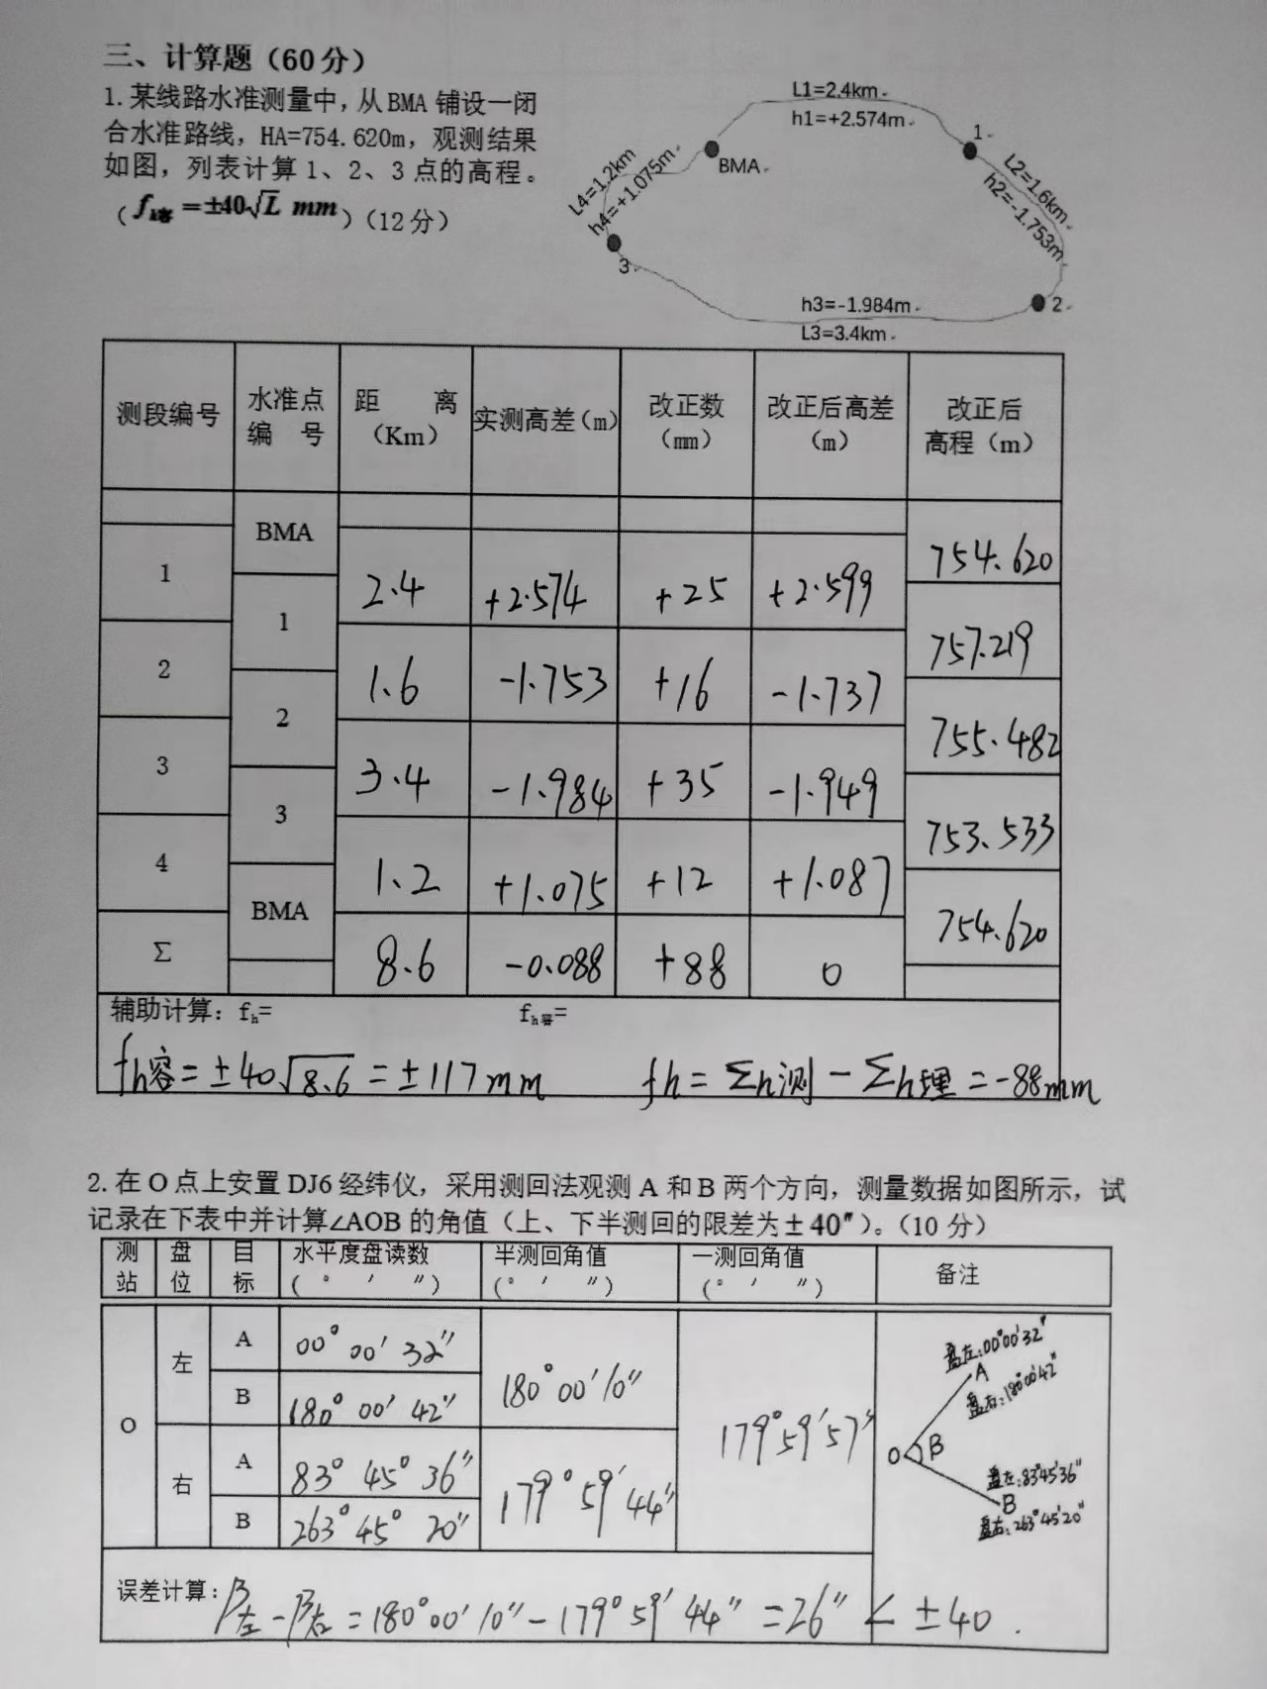 三、计算题（60分）
1.某线路水准测量中，从BMA 铺设一闭
合水准路线，HA=754.620m，观测结果
如图，列表计算 1、2、3 点的高程。
（fh容=±40√L mm）（12分）
L1=2.4km
h1=+2.574m
1
BMA
L2=1.6km
h2=-1.753m
L4=1.2km
h4=+1.075m
3
h3=-1.984m
L3=3.4km
2
测段编号 水准点编 号 距 离（Km） 实测高差（m） 改正数（mm） 改正后高差（m） 改正后高程（m）
BMA 754.620
1 2.4 +2.574 +25 +2.599
1 757.219
2 1.6 -1.753 +16 -1.737
2 755.482
3 3.4 -1.984 +35 -1.949
3 753.533
4 1.2 +1.075 +12 +1.087
BMA 754.620
Σ 8.6 -0.088 +88 0
辅助计算：fh= fh容=
fh容=±40√8.6=±117mm fh=Σh测-Σh理=-88mm
2.在 O 点上安置 DJ6 经纬仪，采用测回法观测 A 和 B 两个方向，测量数据如图所示，试
记录在下表中并计算∠AOB 的角值（上、下半测回的限差为±40″）。（10 分）
测站 盘位 目标 水平度盘读数（° ′ ″） 半测回角值（° ′ ″） 一测回角值（° ′ ″） 备注
O 左 A 00°00′32″ 180°00′10″ 179°59′57″
B 180°00′42″
右 A 83°45°36″ 179°59′44″
B 263°45°20″
盘左:00°00′32″
A
盘右:180°00′42″
O β
盘左:83°45′36″
B
盘右:263°45′20″
误差计算：β左-β右=180°00′10″-179°59′44″=26″<±40.